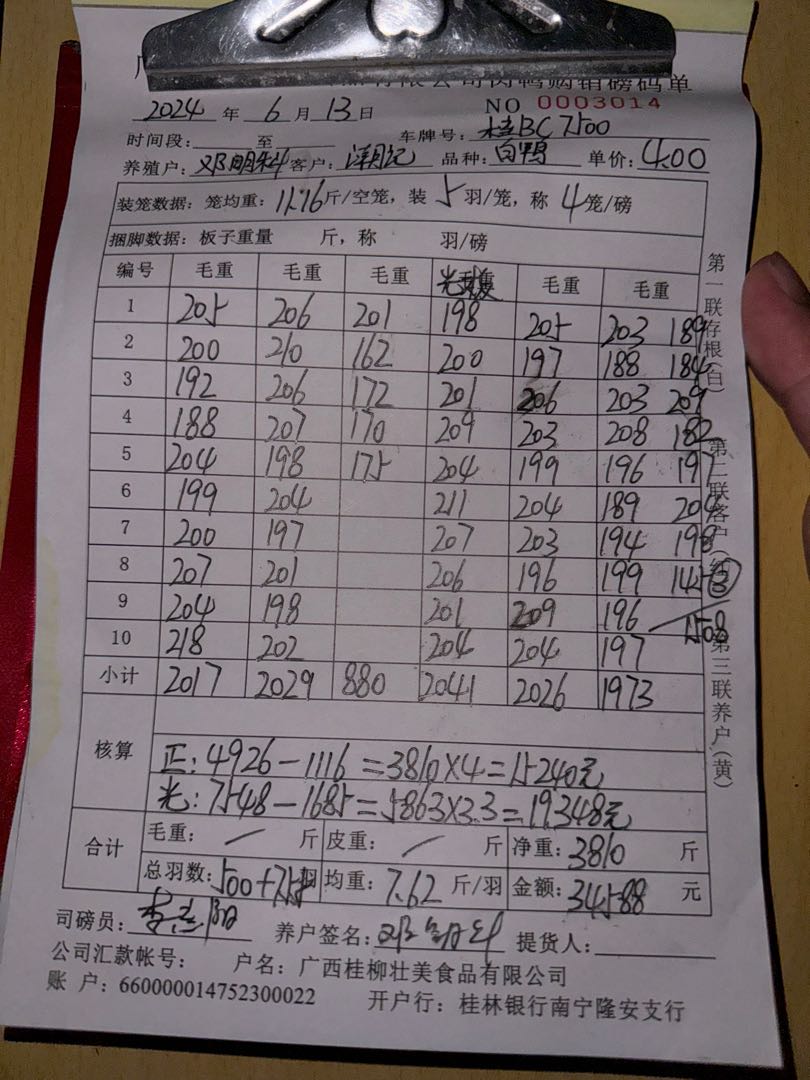 有限公司肉鸭购销磅码单
2024 年 6 月 13 日 NO 0003014
时间段: 至 车牌号: 桂BC7500
养殖户: 客户: 品种: 白鸭 单价: 4.00
装笼数据: 笼均重: 11.16 斤/空笼, 装 5 羽/笼, 称 4 笼/磅
捆脚数据: 板子重量 斤, 称 羽/磅
编号 毛重 毛重 毛重 毛重 毛重
1 205 206 201 198 205 203 189
2 200 210 162 200 197 188 184
3 192 206 172 201 206 203 209
4 188 207 170 209 203 208 182
5 204 198 175 204 199 196 197
6 199 204 211 204 189 204
7 200 197 207 203 194 198
8 207 201 206 196 199 145
9 204 198 201 209 196
10 218 202 204 204 197 1508
小计 2017 2029 880 2041 2026 1973
核算
正: 4926-1116=3810×4=15240元
光: 7548-1685=5863×3.3=19.348元
合计
毛重: / 斤 皮重: / 斤 净重: 3810 斤
总羽数: 500+755羽 均重: 7.62 斤/羽 金额: 34588 元
司磅员: 养户签名: 提货人:
公司汇款帐号: 户名: 广西桂柳壮美食品有限公司
账 户: 660000014752300022 开户行: 桂林银行南宁隆安支行
第一联存根(白) 第二联客户(红) 第三联养户(黄)